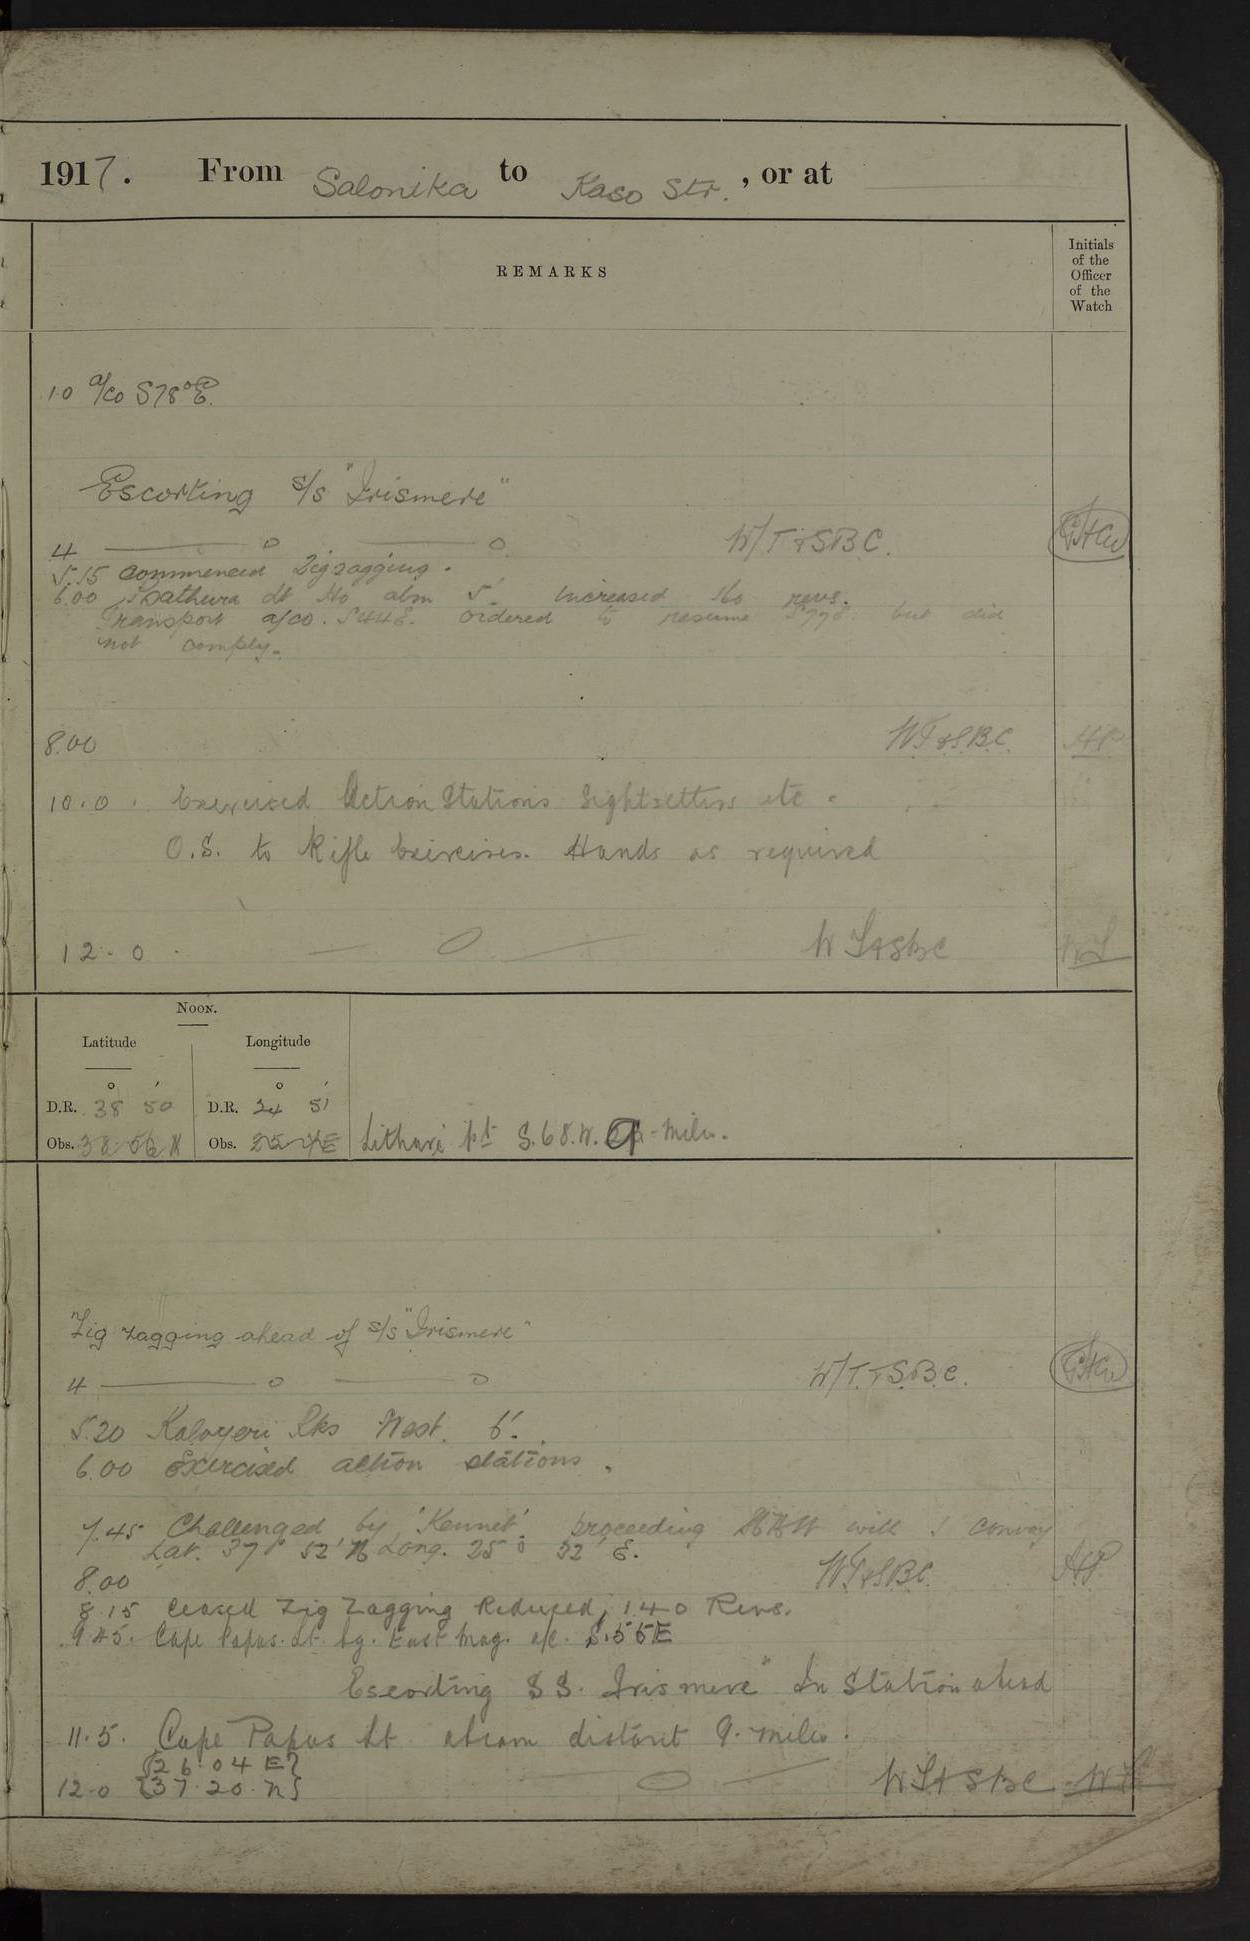 1917. From Salonika to Kaso Str. , or at
REMARKS
Initials of the Officer of the Watch
1.0 a/co S78°E.
Escorting s/s "Irismere"
4 W/T & SBC.
5.15 Commenced Zigzagging.
6.00 Psathura Lt Ho abm 5'. Increased 160 revs.
Transport a/co. S44E. ordered to resume S77E but did
not comply.
8.00 WT & SBC. AP
10.0. Exercised Action Stations Sightsetters etc.
O.S. to Rifle Exercises. Hands as required
12.0. WT & SBC WL
NOON.
Latitude Longitude
D.R. 38 50 D.R. 24 51
Obs. Obs. Lithari pt S.68.W. Miles.
Zig zagging ahead of s/s "Irismere"
4 W/T. & S.B.C.
5.20 Kaloyeri Rks West. 6'.
6.00 Exercised action stations.
7.45 Challenged by 'Kennet'. proceeding with 1 convoy
Lat. 37° 52' N Long. 25° 32' E.
8.00 WT & SBC. AP
8.15 Ceased Zig Zagging Reduced, 140 Revs.
9.45. Cape Papas. Lt. bg. East Mag. a/c. S.55E
Escorting SS. Irismere" In Station ahead
11.5. Cape Papas Lt abeam distant 9. miles.
{26.04 E}
12.0 {37.20.N} WT & SBC WL